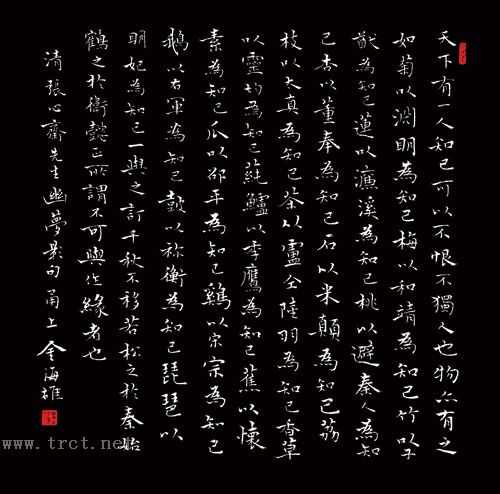 天下有一人知己可以不恨不獨人也物亦有之
如菊以淵明為知己梅以和靖為知己竹以子
猷為知己蓮以濂溪為知己桃以避秦人為知
己杏以董奉為知己石以米顛為知己荔
枝以太真為知己茶以盧仝陸羽為知己香草
以靈均為知己蒓鱸以季鷹為知己蕉以懷
素為知己瓜以邵平為知己鷄以宋宗為知己
鵝以右軍為知己鼓以祢衡為知己琵琶以
明妃為知己一與之訂千秋不移若松之於秦始
鶴之於衛懿正所謂不可與作緣者也
清張心齋先生幽夢影句甬上金海雄
www.trct.net